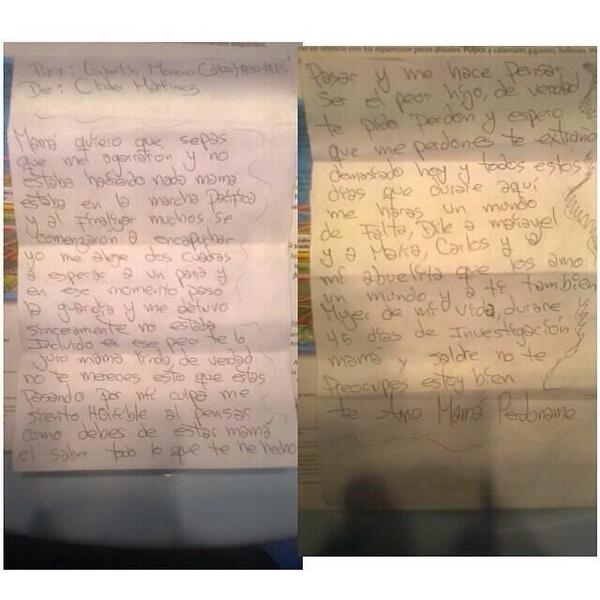 Para: Lisbeth Moreno
De: Clider Martinez
Mamá quiero que sepas
que me agarraron y no
estaba haciendo nada mama
estaba en la marcha Pacifica
y al finalizar muchos se
comenzaron a encapuchar
yo me aleje dos cuadras
a esperar a un pana y
en ese momento paso
la guardia y me detuvo
sinceramente no estaba
Incluido en ese peo te lo
juro mama linda de verdad
no te mereces esto que estas
Pasando por mi culpa me
siento Horrible al pensar
como debes de estar mamá
el saber todo lo que te he hecho
Pasar y me hace pensar
ser el peor hijo, de verdad
te pido Perdon y espero
que me perdones te extraño
demasiado hoy y todos estos
dias que durare aquí
me haras un mundo
de Falta, Dile a
y a Maria, Carlos y a
mi abuelita que los amo
un mundo y a ti tambien
Mujer de mi vida, durare
45 dias de Investigación
mamá y saldre no te
Preocupes estoy bien
te Amo Mamá Perdoname.